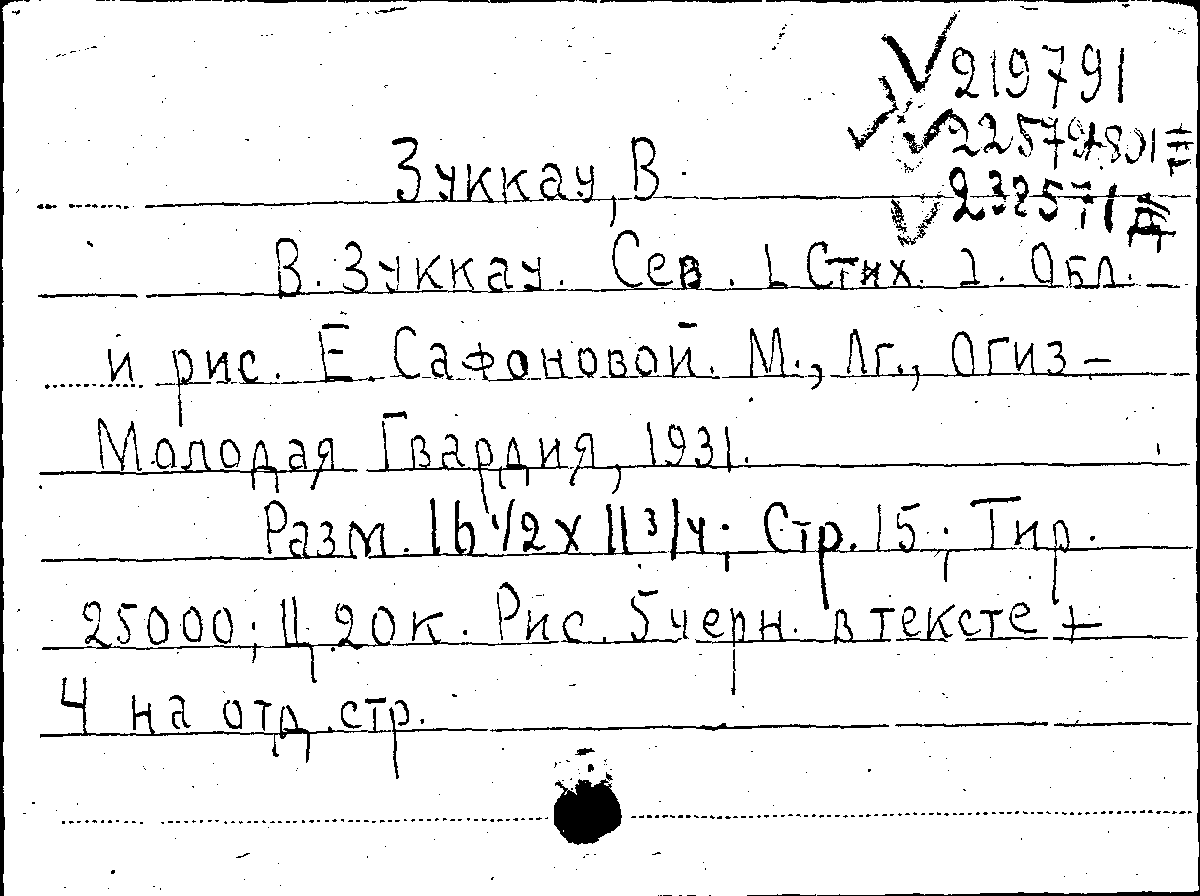 219791
Зуккау, В.
232571
В. Зуккау. Сев. [Стих.]. Обл.
и рис. Е. Сафоновой. М., Лг., Огиз-
Молодая Гвардия, 1931.
Разм. 16 1/2 x 11 3/4; Стр. 15; Тир.
25000; Ц. 20 к. Рис. 5 черн. в тексте +
4 на отд. стр.